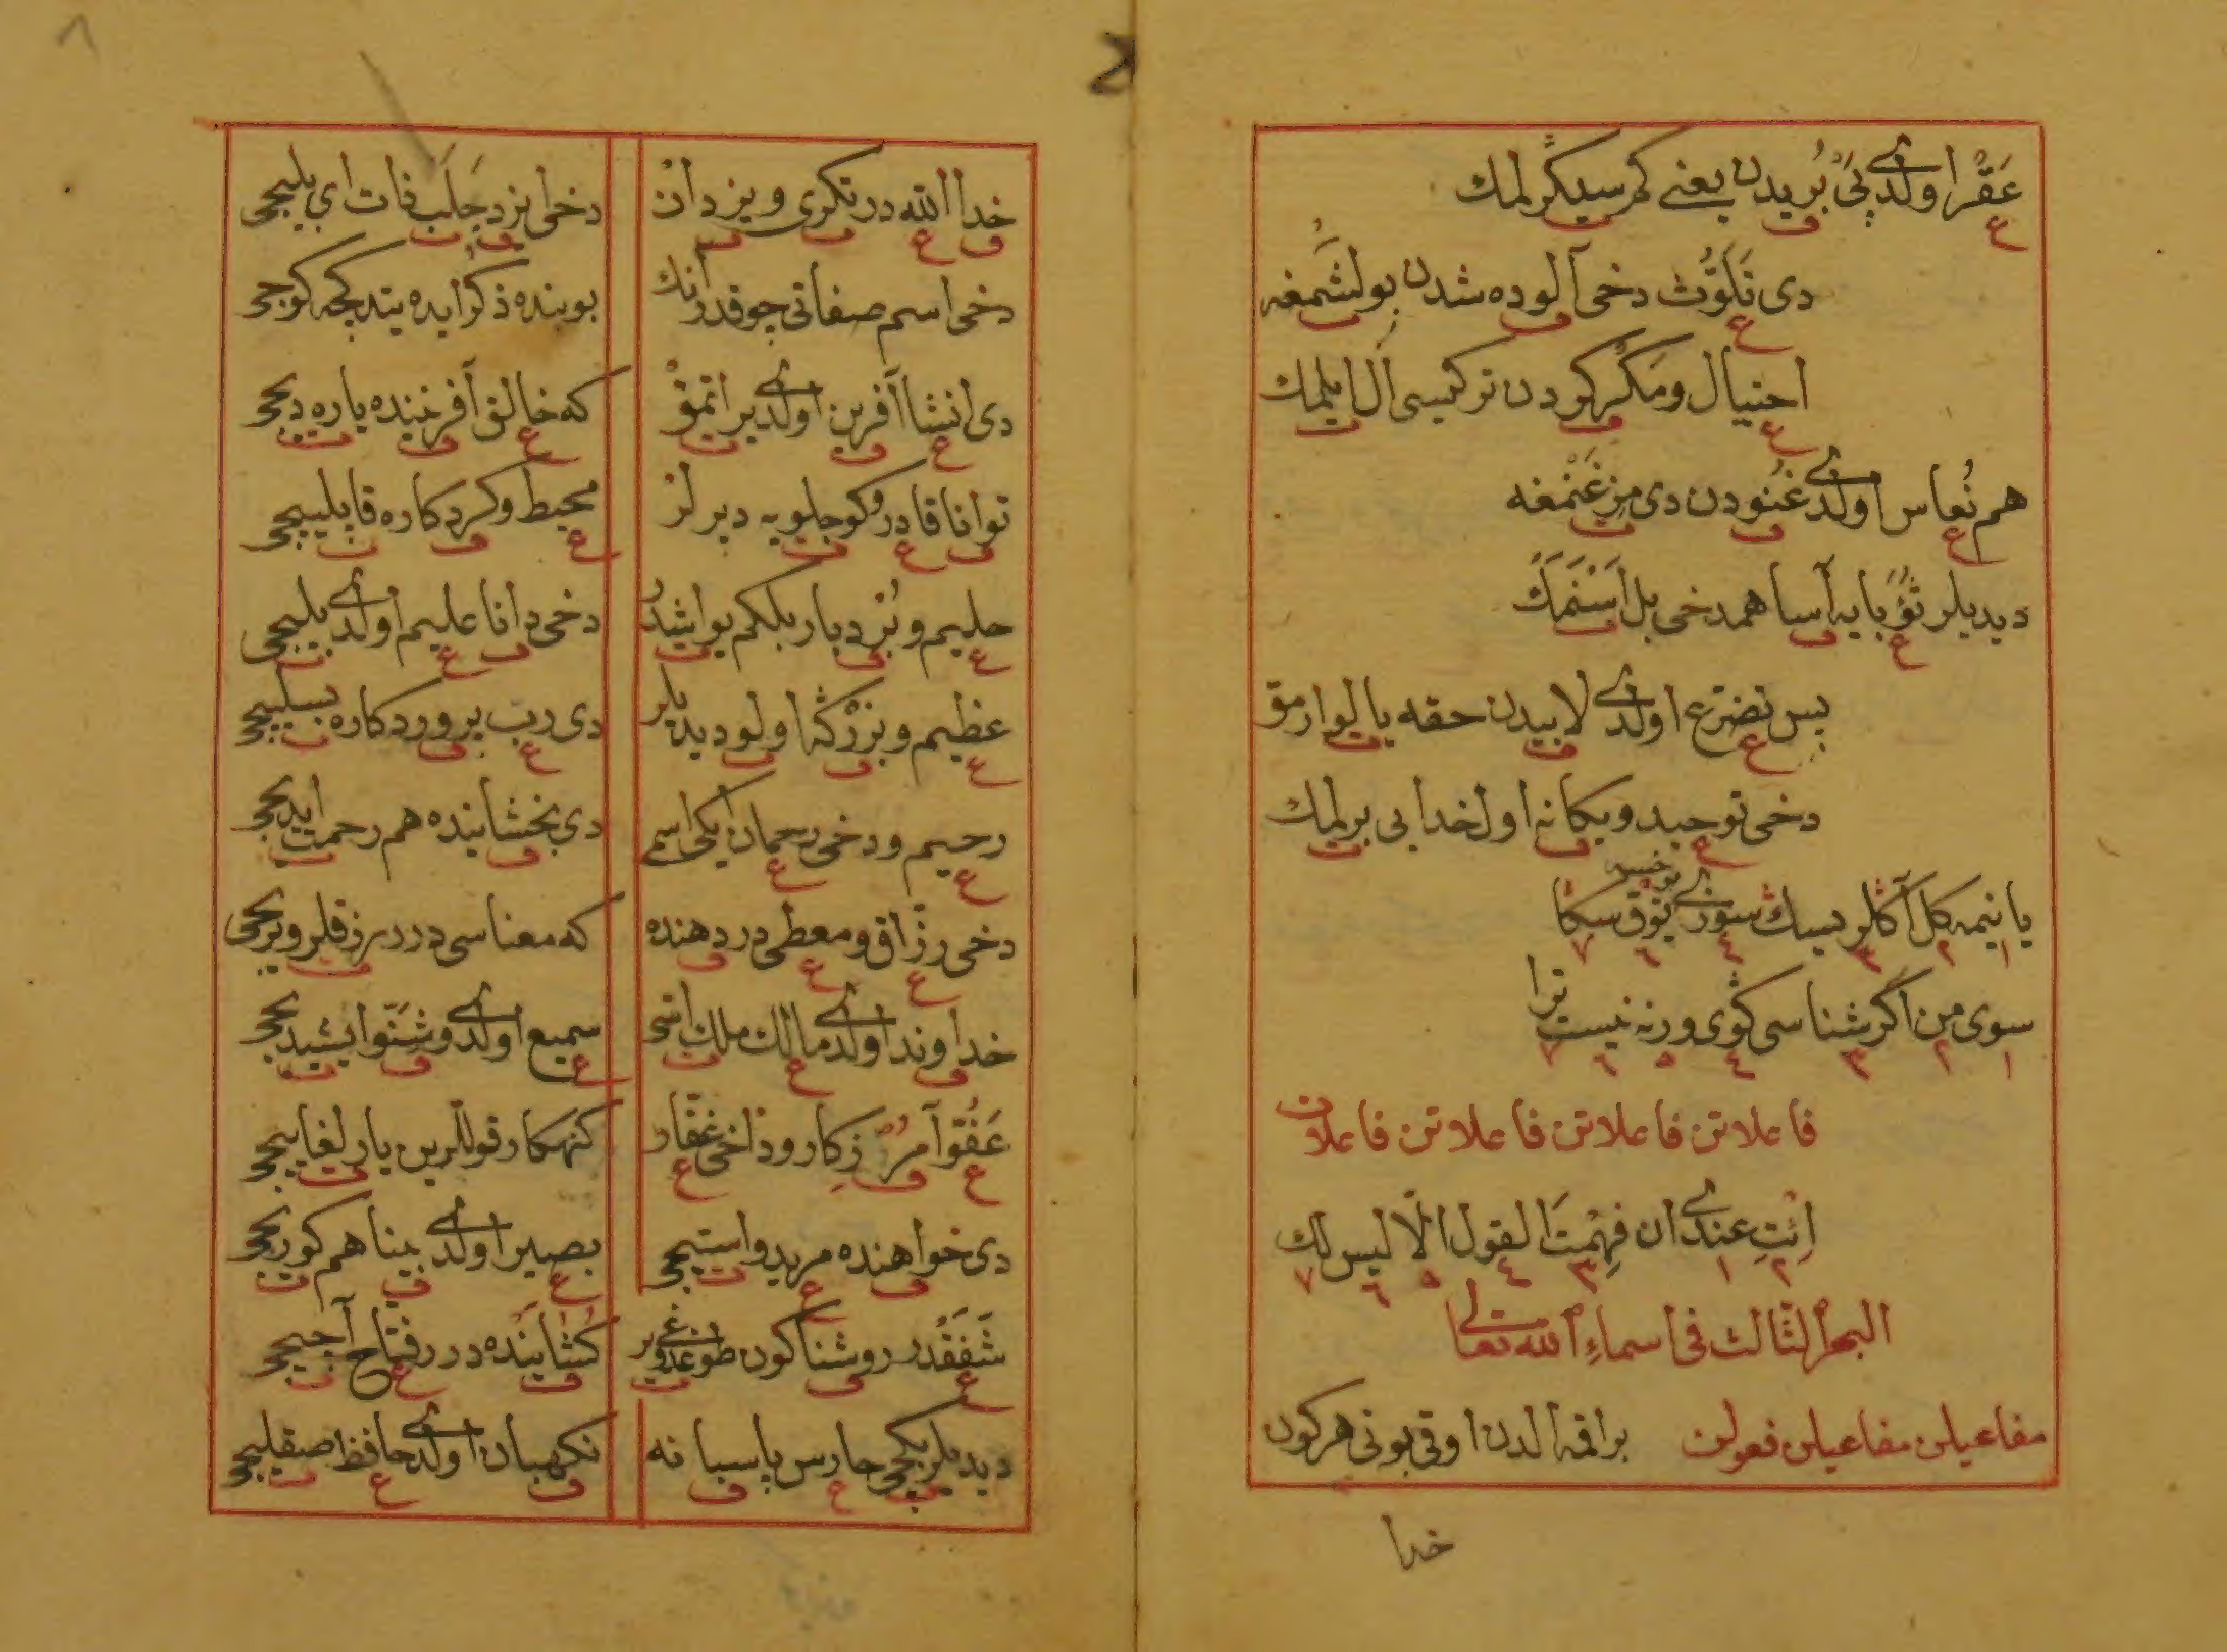 عَقْر اولدی پَیْ بُریدن یعنے کم سیکرلمك
دی تَلَوُّث دخی آلوده شدن بولشمغه
احتیال و مکر کردن ترکیسی آل ایلمك
هم نُعاس اولدی غُنُودن دی مزغَنْمغه
دیدیلر ثؤبایه آسا هم دخی بل اَسْنَمَك
پس تضرّع اولدی لابیدن حقه یالوارمق
دخی توحید و یکانه اول خدایی برلمك
یانیمه کل آکلر سك سوزی یوق سکا
سوی من اگر شناسی گوی ورنه نیست ترا
فاعلاتن فاعلاتن فاعلاتن فاعلات
اِئْتِ عندی ان فهمْتَ القول الّا لیس لك
البحر الثّالث فی اسماءِ اللّه تعالی
مفاعیلن مفاعیلن فعولن براقمه الدن اوقی بونی هر کون
خدا
خدا اللّه در تکری و یزدان دخی ایزد جَلَب فات ای بلیجی
دخی اسم صفاتی چوقدر انك بو بنده ذکر ایده یتدکجه کوجی
دی انشا آفرین اولدی براتمق که خالق آفرننده یاره دیجی
توانا قادر و کوجلویه دیرلر محیط و کردکاره قابلییجی
حلیم و بُردبار بلکم یواشدُر دخی دانا علیم اولدی بلیجی
عظیم و بزرگه اولو دیدیلر دی رب پروردکاره بسلییجی
رحیم و دخی رحمان ایکی اسم دی بخشاینده هم رحمت ایدیجی
دخی رزّاق و معطی در دهنده که معناسی در رزقلر ویریجی
خداوند اولدی مالك ملك اسّی سمیع اولدی و شَنَوا ایشیدیجی
عَفُوّ آمرزکار و داخی غفّار کنهکار قوللرین یارلغاییجی
دی خواهنده مرید و استیجی بصیر اولدی بینا هم کوریجی
شَفَقْدر روشنا کون طوغدوغی یر کُشاینده در فتاح آجیجی
دیدیلر بکجی حارس پاسبانه نکهبان اولدی حافظ صقلییجی